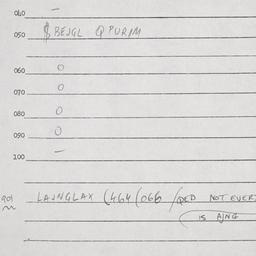 040 —
050 $ BEJGL Q PURIM
060 O
070 O
080 O
090 O
100 —
LAJNGLAX (464 (066 / QED NOT EVER
IS AJNG